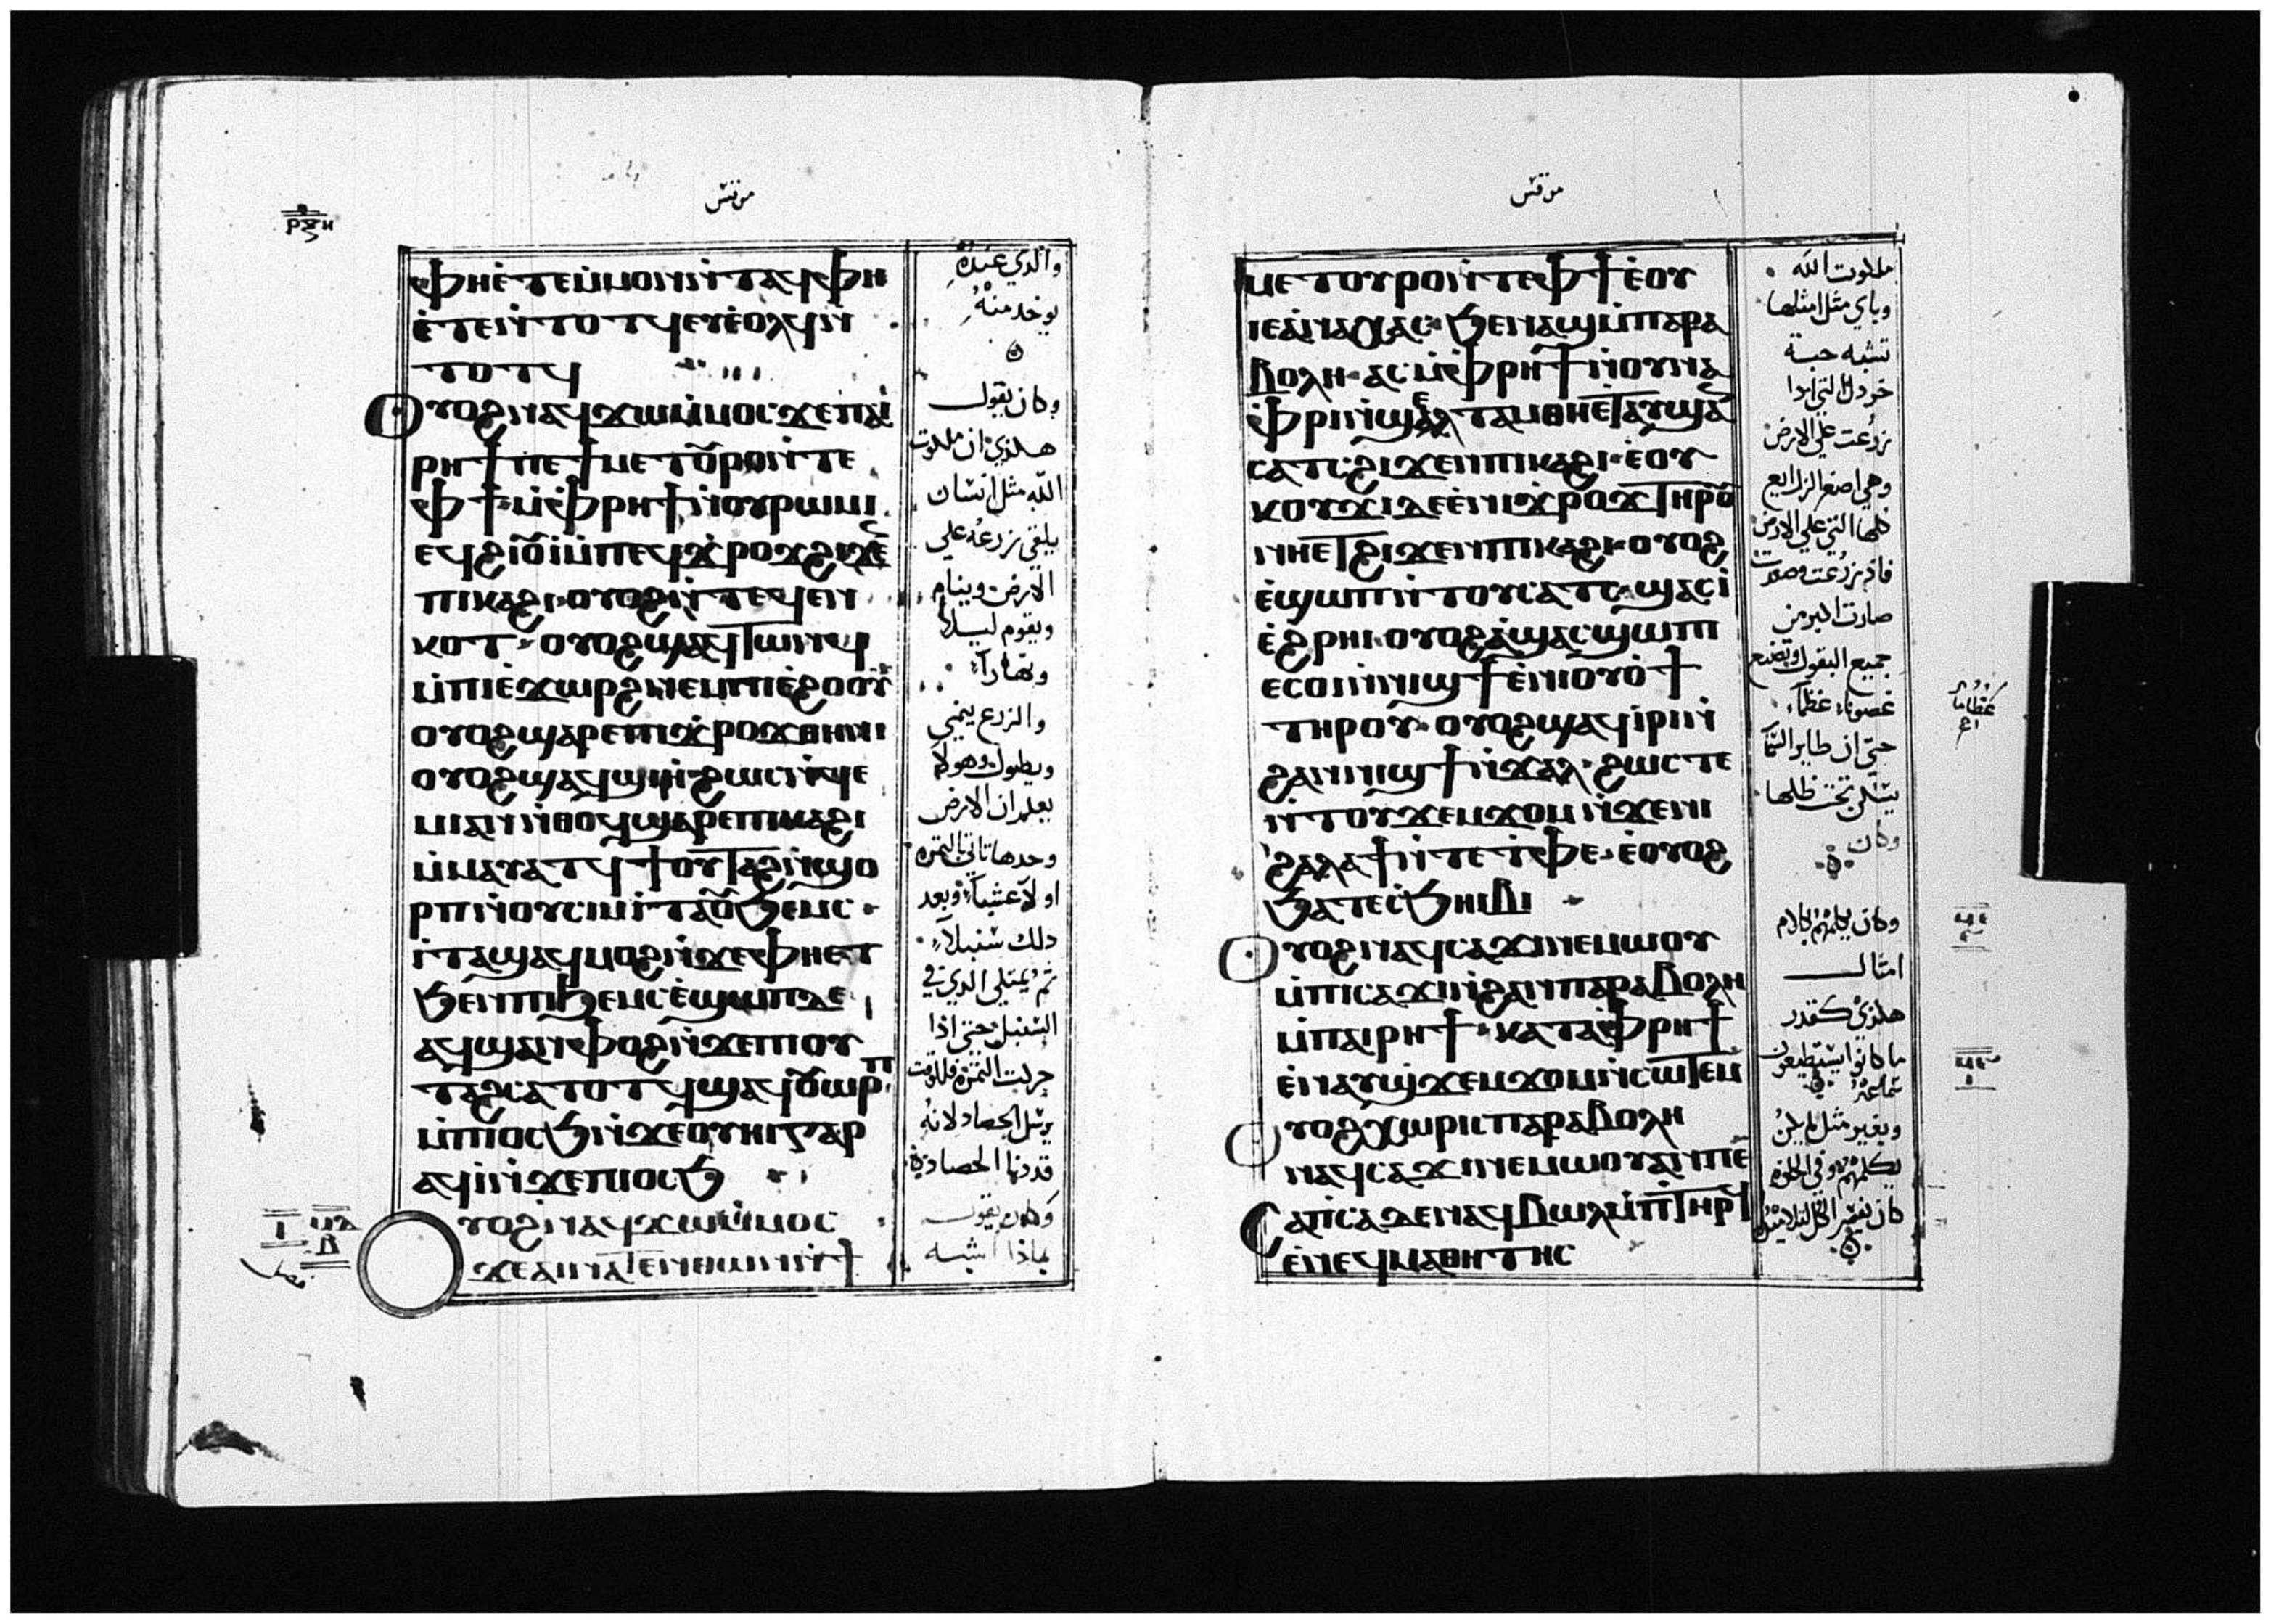 مرقس
ⲣⲝⲏ
ⲫⲏⲉ̀ⲧⲉⲙ̀ⲙⲟⲛⲛ̀ⲧⲁϥⲫⲏ
ⲉ̀ⲧⲉⲛ̀ⲧⲟⲧϥⲉⲩⲉ̀ⲟⲗϥⲛ̀
ⲧⲟⲧϥ
ⲟⲩⲟϩⲛⲁϥϫⲱⲙ̀ⲙⲟⲥϫⲉⲡⲁⲓ
ⲣⲏϯⲡⲉϯⲙⲉⲧⲟⲩⲣⲟⲛ̀ⲧⲉ
ⲫϯⲙ̀ⲫⲣⲏϯⲛ̀ⲟⲩⲣⲱⲙⲓ
ⲉϥϩⲓⲟⲩⲓ̀ⲙ̀ⲡⲉϥϫ̀ⲣⲟϫϩⲓϫⲉ̄
ⲡⲓⲕⲁϩⲓ·ⲟⲩⲟϩⲛ̀ⲧⲉϥⲉⲛ
ⲕⲟⲧ·ⲟⲩⲟϩϣⲁϥⲧⲱⲛϥ
ⲙ̀ⲡⲓⲉ̀ϫⲱⲣϩⲛⲉⲙⲡⲓⲉ̀ϩⲟⲟⲩ
ⲟⲩⲟϩϣⲁⲣⲉⲡⲓϫ̀ⲣⲟϫⲑⲏⲛⲓ
ⲟⲩⲟϩϣⲁϥϣⲓⲏⲓ̀·ϩⲱⲥⲛ̀ϥⲉ
ⲙⲓⲁⲛⲛ̀ⲑⲟϥϣⲁⲣⲉⲡⲓⲕⲁϩⲓ
ⲙ̀ⲙⲁⲩⲁⲧϥϯⲟⲩⲧⲁϩⲛ̀ϣⲟ
ⲣⲡⲛ̀ⲟⲩⲥⲓⲙⲓ̀ⲧⲁⲟⲩϧⲉⲙⲥ·
ⲓ̀ⲧⲁϣⲁϥⲙⲟϩⲛ̀ϫⲉⲫⲏⲉⲧ
ϧⲉⲛⲡⲓϧⲉⲙⲥⲉ̀ϣⲱⲡⲇⲉ
ⲁϥϣⲁⲛⲫⲟϩⲛ̀ϫⲉⲡⲓⲟⲩ
ⲧⲁϩⲥⲁⲧⲟⲧϥϣⲁϥⲟⲩⲱⲣⲡ
ⲙ̀ⲡⲓⲟⲥϧⲛ̀ϫⲉⲟⲩⲏⲓⲅⲁⲣ
ⲁϥⲓ̀ⲛ̀ϫⲉⲡⲓⲟⲥϧ
ⲟⲩⲟϩⲛⲁϥϫⲱⲙ̀ⲙⲟⲥ
ϫⲉⲁⲛⲛⲁⲧⲉⲛⲑⲱⲛⲛ̀ϯ
والذي عنده
يوخد منه
وكان يقول
هكذي ان ملكوت
الله مثل انسان
يلقي زرعه علي
الارض وينام
ويقوم ليلا
ونهارا
والزرع ينمي
ويطول وهو لا
يعلم ان الارض
وحدها تاتي بالثمرة
اولا عشبا وبعد
دلك سنبلا
ثم يمتلي الدي في
السنبل حتي اذا
يرسل الحصاد لانه
قد دنا الحصاد
وكان يقول
بماذا اشبه
فصل
مرقس
ⲙⲉⲧⲟⲩⲣⲟⲛ̀ⲧⲉⲫϯⲉ̀ⲟⲩ
ⲓⲉⲁ̀ⲛⲁⲭⲁⲥ·ϧⲉⲛⲁϣⲙ̀ⲡⲁⲣⲁ
ⲃⲟⲗⲏ·ⲁⲥⲙ̀ⲫⲣⲏϯⲛ̀ⲟⲩⲛⲁ
ⲫⲣⲓⲛ̀ϣⲉⲗⲧⲁⲙⲑⲏⲉⲧⲁⲩϣⲁ̄
ⲥⲁⲧⲥϩⲓϫⲉⲛⲡⲓⲕⲁϩⲓ·ⲉ̀ⲟⲩ
ⲕⲟⲩϫⲓⲇⲉⲉ̀ⲛⲓϫ̀ⲣⲟϫⲧⲏⲣⲟⲩ
ⲛⲏⲉⲧϩⲓϫⲉⲛⲡⲓⲕⲁϩⲓ·ⲟⲩⲟϩ
ⲉ̀ϣⲱⲡⲛ̀ⲧⲟⲩⲥⲁⲧⲥ·ϣⲁⲥⲓ̀
ⲉ̀ϩⲣⲏⲓ·ⲟⲩⲟϩⲁ̀ϣⲁⲥϣⲱⲡ
ⲉⲥⲟⲓⲛⲛⲓϣϯⲉ̀ⲛⲓⲟⲩⲟ̀ϯ
ⲧⲏⲣⲟⲩ·ⲟⲩⲟϩϣⲁϥⲓ̀ⲣⲓⲛ̀
ϩⲁⲛⲛⲓϣϯⲛ̀ϫⲁⲗ·ϩⲱⲥⲧⲉ
ⲛ̀ⲧⲟⲩϫⲉⲙϫⲟⲙⲛ̀ϫⲉⲛⲓ
ϩⲁⲗⲁϯⲛ̀ⲧⲉⲧ̀ⲫⲉ·ⲉ̀ⲟⲩⲟϩ
ϧⲁⲧⲉⲥϧⲏⲓⲃⲓ
ⲟⲩⲟϩⲛⲁϥⲥⲁϫⲓⲛⲉⲙⲱⲟⲩ
ⲙ̀ⲡⲓⲥⲁϫⲓⲛ̀ϩⲁⲛⲡⲁⲣⲁⲃⲟⲗⲏ
ⲙ̀ⲡⲁⲓⲣⲏϯ·ⲕⲁⲧⲁⲫⲣⲏϯ
ⲉ̀ⲛⲁⲩϣϫⲉⲙϫⲟⲙⲛ̀ⲥⲱⲧⲉⲙ
ⲟⲩⲟϩⲭⲱⲣⲓⲥⲡⲁⲣⲁⲃⲟⲗⲏ
ⲛⲁϥⲥⲁϫⲓⲛⲉⲙⲱⲟⲩⲁⲛⲡⲉ
ⲥⲁⲡⲥⲁⲇⲉⲛⲁϥⲃⲱⲗⲙ̀ⲡⲧⲏⲣϥ
ⲉ̀ⲛⲉϥⲙⲁⲑⲏⲧⲏⲥ
ملكوت الله
وباي مثل امثلها
تشبه حبة
خردل التي اذا
زرعت علي الارض
وهي اصغر الزراريع
كلها التي علي الارض
فاذ زرعت وصعدت
صارت اكبر من
جميع البقول وتصنع
غصونا عظما
حتي ان طاير السما
يسكن تحت ظلها
وكان
وكان يكلمهم بكلام
امثال
هكذي كقدر
ما كانوا يستطيعون
سماعه
وبغير مثل لم يكن
يكلمهم وفي الخلوة
كان يفسر الكل لتلاميذه